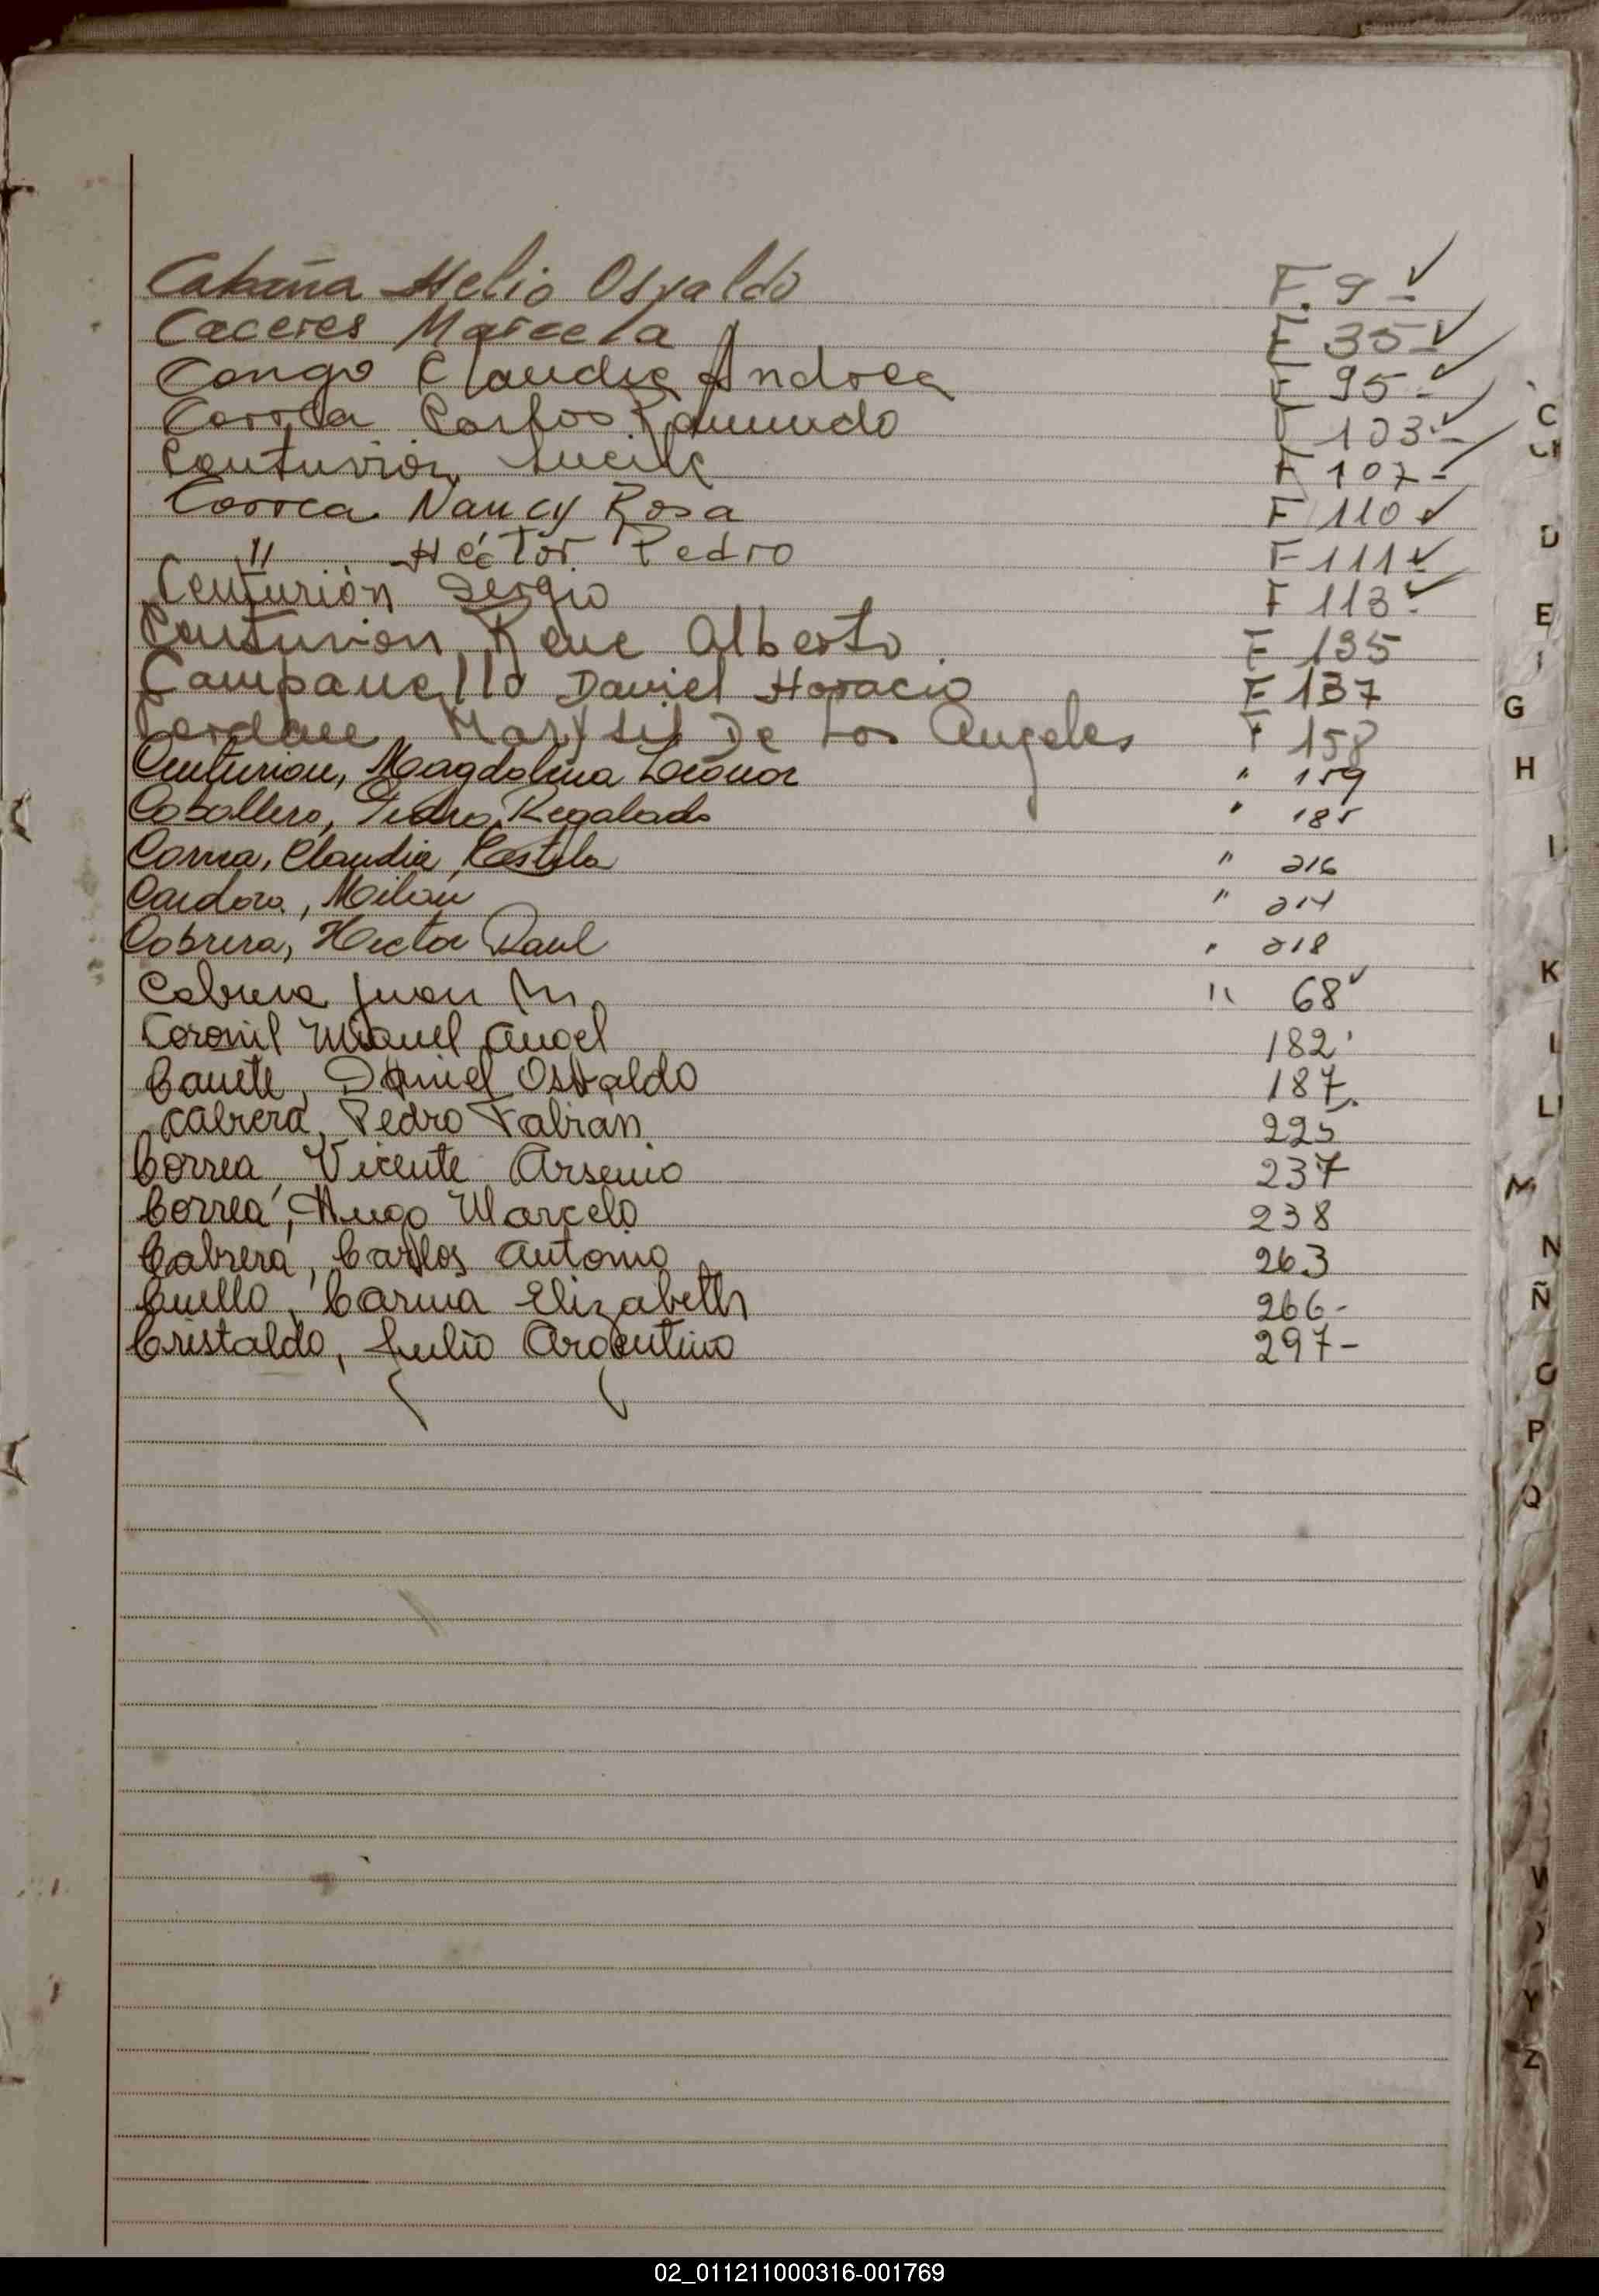 Cabaña Helio Osvaldo F. 9 -
Caceres Marcela F 35 -
Congo Claudia Andrea F 95 -
Correa Carlos Raimundo F 103 -
Centurion Lucila F 107 -
Correa Nancy Rosa F 110
" Héctor Pedro F 111
Centurión Sergio F 113 -
Centurion Rene Alberto F 135
Campanello Daniel Horacio F 137
De Los Angeles F 158
Centurion, Magdalena Leonor " 159
Caballero, Pedro Regalado " 185
Correa, Claudia " 216
Cardozo, Milán "
Cabrera, Hector Raul " 218
Cabrera Juan M. " 68
Coronil Miguel Angel 182
Canete, Daniel Osvaldo 187
Cabrera, Pedro Fabian 225
Correa, Vicente Arsenio 237
Correa, Hugo Marcelo 238
Cabrera, Carlos Antonio 263
Cuello, Carina Elizabeth 266-
Cristaldo, Julio Argentino 297-
C
CH
D
E
G
H
I
K
L
LL
M
N
Ñ
O
P
Q
W
Y
Z
02_011211000316-001769